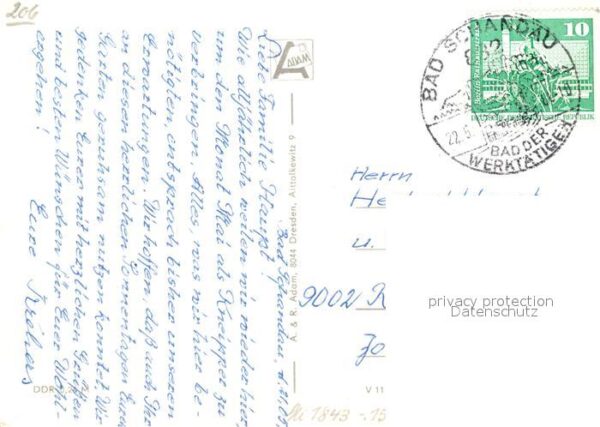 206
Bad Schandau, d.
Liebe Familie Haupt!
Wie alljährlich weilen wir wieder hier,
um den Monat Mai als Kneipper zu
verbringen. Alles, was wir hier be-
nötigen, entsprach bisher unseren
Erwartungen. Wir hoffen, daß auch Ihr
an diesen herzlichen Sonnentagen Euren
Garten genutzen konntet. Wir
gedenken Eurer mit herzlichen Grüßen
und besten Wünschen für Euer Wohl-
ergehen!
Eure
DDR
A. & R. Adam, 8044 Dresden, Altolkewitz 9
V 11
BAD SCHANDAU
BAD DER
WERKTÄTIGEN
10
Berlin, Rathausstraße
DEUTSCHE DEMOKRATISCHE REPUBLIK
Herrn
u.
9002
privacy protection
Datenschutz
1843 - 15